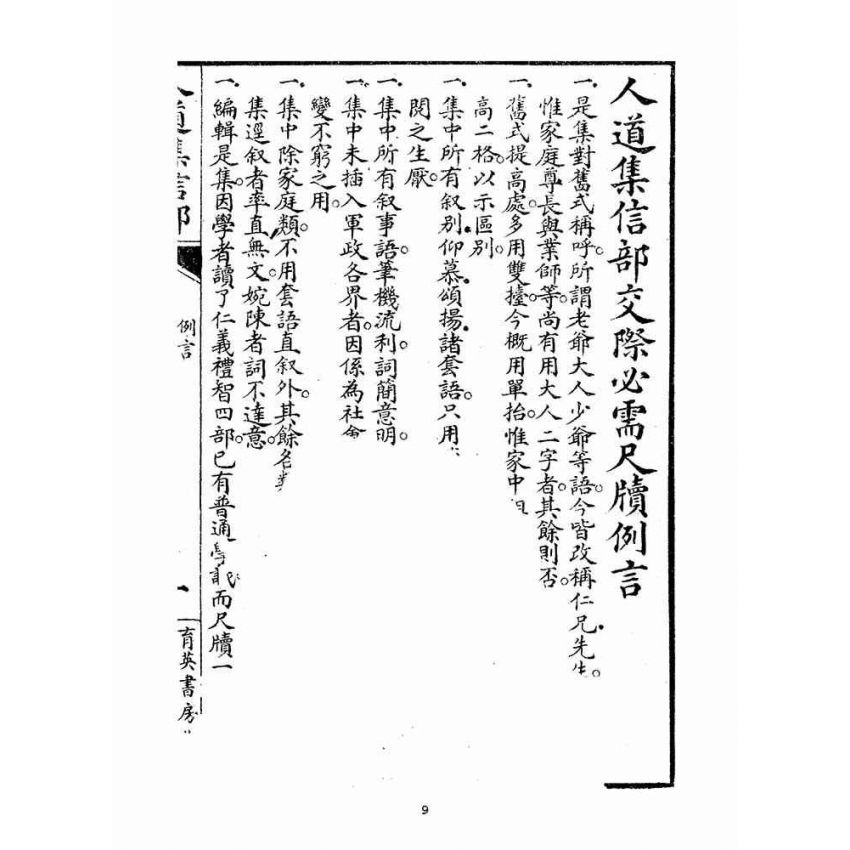 人道集信部交際必需尺牘例言
一是集對舊式稱呼。所謂老爺大人少爺等語。今皆改稱仁兄先生。
惟家庭尊長與業師等。尚有用大人二字者。其餘則否。
一舊式提高處。多用雙擡。今概用單抬。惟家中
高二格。以示區別。
一集中所有叙别仰慕頌揚諸套語。只用
閱之生厭。
一集中所有叙事語。筆機流利。詞簡意明。
一集中未插入軍政各界者。因係為社會
變不窮之用。
一集中除家庭類。不用套語直叙外。其餘各
集逕叙者率直無文。婉陳者詞不達意。
一編輯是集。因學者讀了仁義禮智四部。已有普通學識而尺牘一
人道集信部
例言
一
育英書房
9